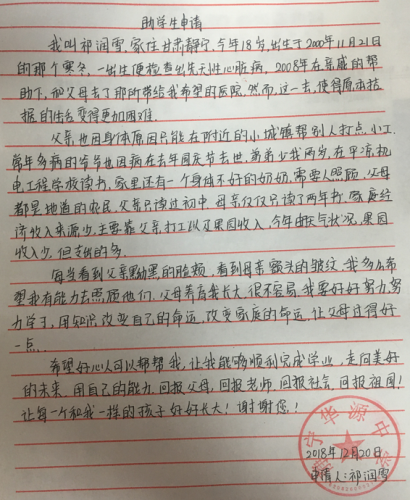 助学生申请
我叫祁润雪,家住甘肃静宁,今年18岁,出生于2000年11月21日
的那个寒冬,一出生便检查出先天性心脏病,2008年在亲戚的帮
助下,和父母去了那所带给我希望的医院,然而,这一去,使得原本拮
据的生活变得更加困难.
父亲也因身体原因只能在附近的小城镇帮别人打点小工.
常年多病的爷爷也因病在去年国庆节去世.弟弟少我两岁,在平凉机
电工程学校读书.家里还有一个身体不好的奶奶,需要人照顾,父母
都是地道的农民,父亲只读过初中,母亲仅仅只读了两年书.家庭经
济收入来源少,主要靠父亲打工以及果园收入,今年由天气状况,果园
收入少,但支出的多.
每当看到父亲黝黑的脸颊,看到母亲额头的皱纹,我多么希
望我有能力去照顾他们.父母养育我长大,很不容易,我要好好努力,努
力学习,用知识改变自己的命运,改变家庭的命运,让父母过得好
一点.
希望好心人可以帮帮我,让我能够顺利完成学业,走向美好
的未来.用自己的能力,回报父母,回报老师,回报社会,回报祖国!
让每一个和我一样的孩子好好长大!谢谢您!
静宁华源中学
2018年12月20日
申请人:祁润雪